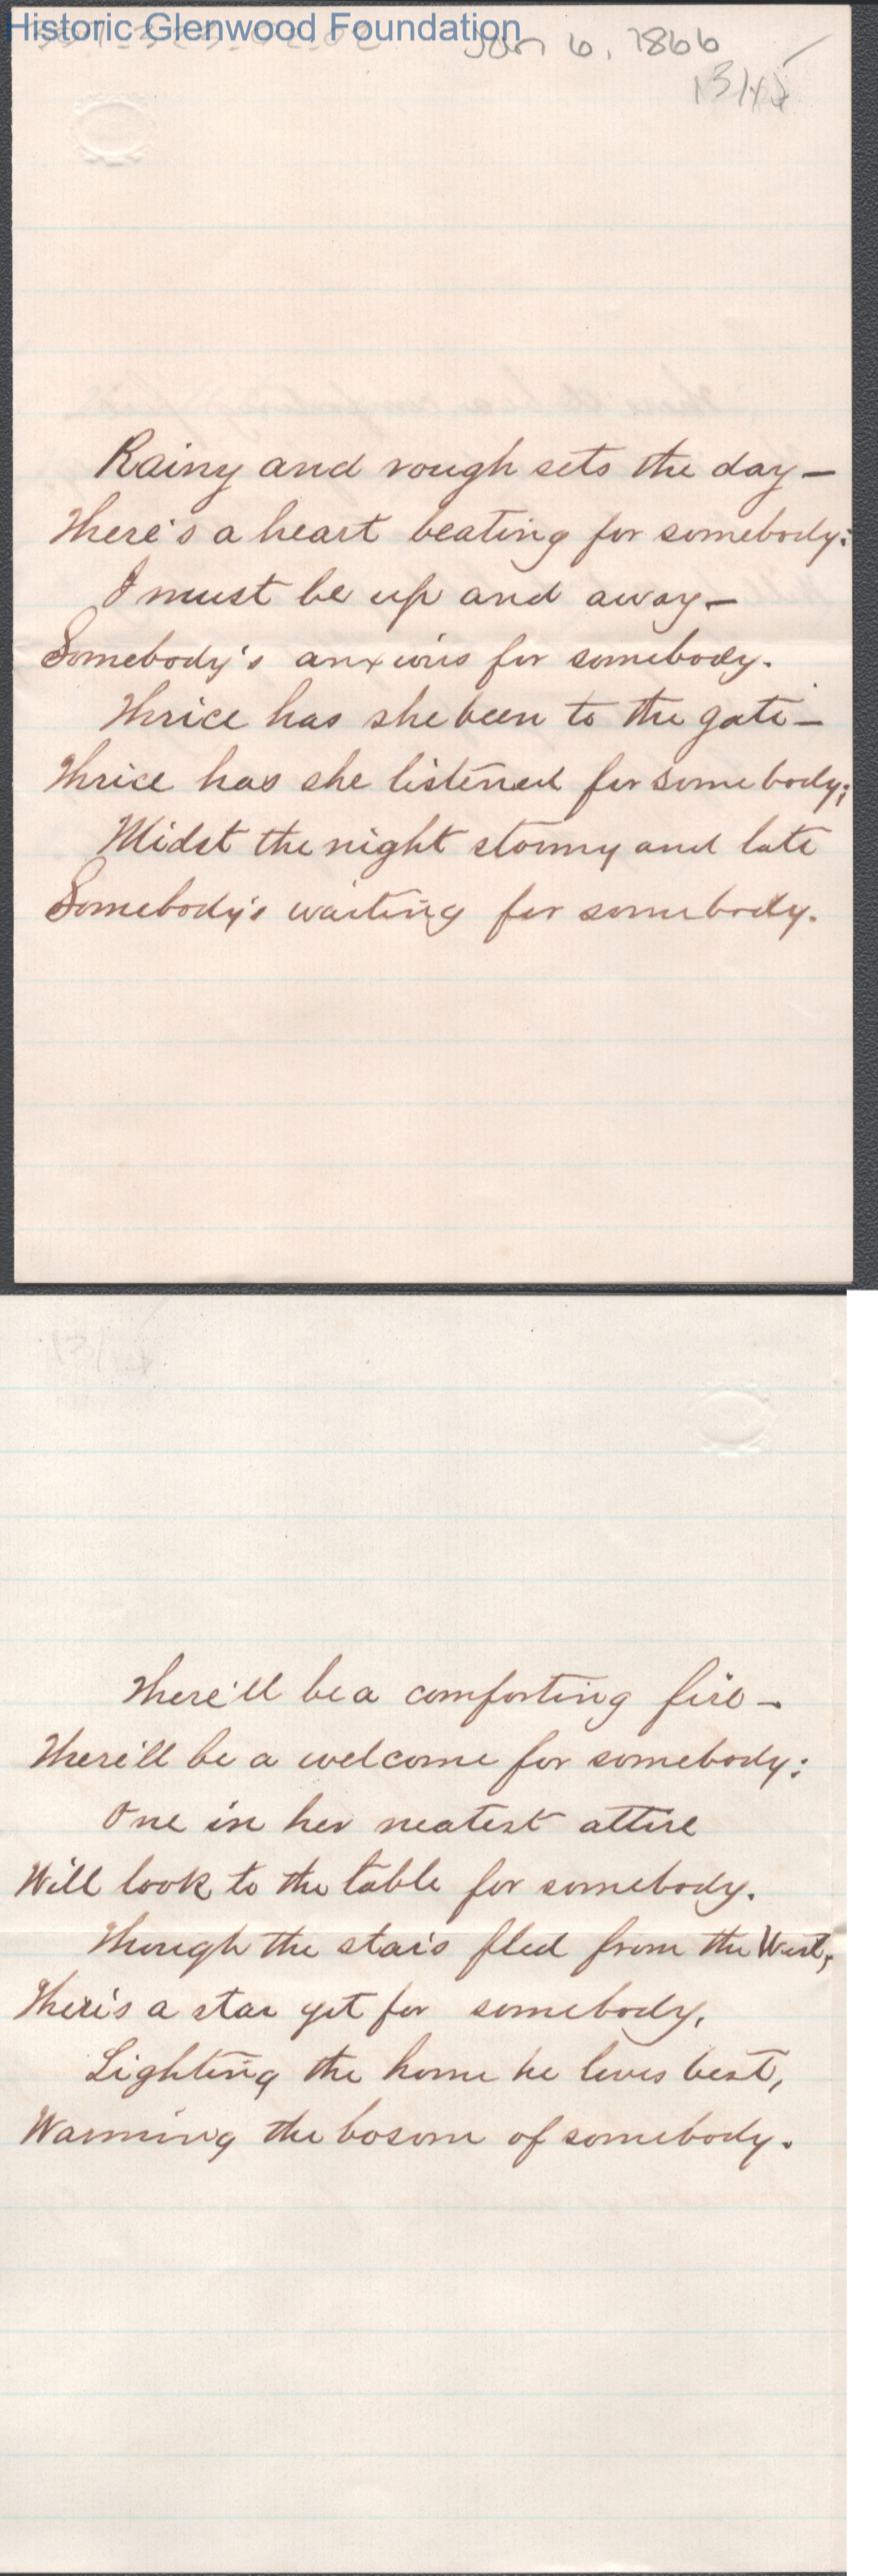 Historic Glenwood Foundation
Jan 6, 1866
Rainy and rough sets the day—
There's a heart beating for somebody:
I must be up and away—
Somebody's anxious for somebody.
Thrice has she been to the gate—
Thrice has she listened for somebody;
Midst the night stormy and late
Somebody's waiting for somebody.
There'll be a comforting fire—
There'll be a welcome for somebody:
One in her neatest attire
Will look to the table for somebody.
Though the stars fled from the West,
There's a star yet for somebody,
Lighting the home he loves best,
Warming the bosom of somebody.